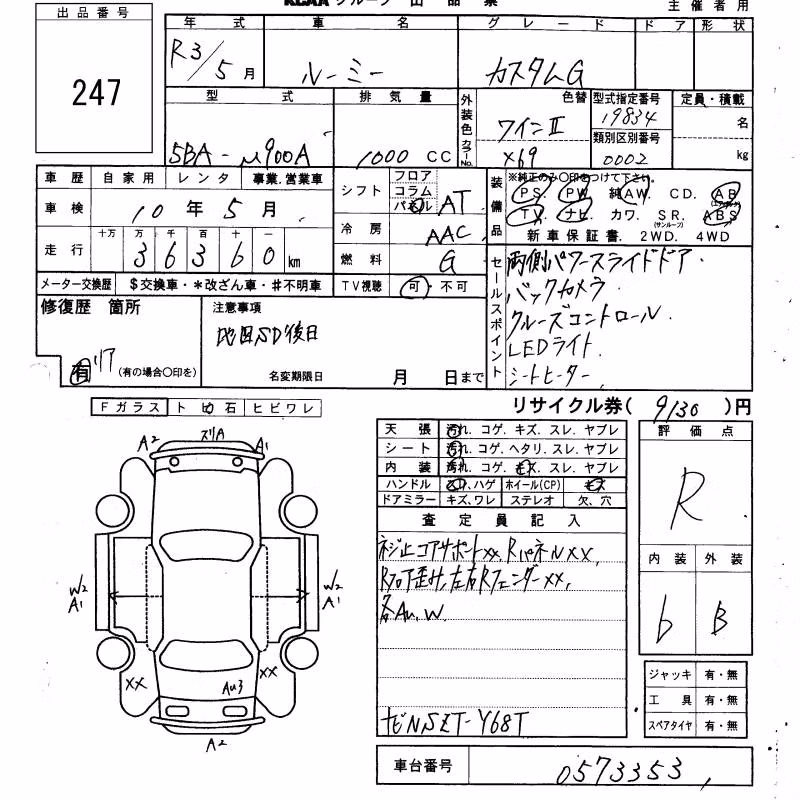 KCAA グループ 出品票
主催者用
出品番号
247
年式 車名 グレード ドア 形状
R3/5月 ルーミー カスタムG
型式 排気量 外装色 カラーNo. 色替 型式指定番号 定員・積載
19834
名
5BA-M900A 1000 CC ワインⅡ X69 類別区別番号 0002 kg
車歴 自家用 レンタ 事業.営業車
車検 10年5月
走行 十万 万 千 百 十 一
3 6 3 6 0 km
メーター交換歴 $交換車・*改ざん車・#不明車
シフト フロア コラム パネル AT
冷房 AAC
燃料 G
TV視聴 可・不可
装備品 ※純正のみ〇印をつけて下さい。
PS. PW. 純AW. CD. AB (エアバッグ)
TV. ナビ. カワ. SR. (サンルーフ) ABS
新車保証書. 2WD. 4WD
セールスポイント
両側パワースライドドア.
バックカメラ
クルーズコントロール.
LEDライト.
シートヒーター.
修復歴 箇所
有 リア (有の場合〇印を)
注意事項
地図SD後日
名変期限日 月 日まで
リサイクル券( 9130 )円
Fガラス トビ石 ヒビワレ
天張 汚れ. コゲ. キズ. スレ. ヤブレ
シート 汚れ. コゲ. ヘタリ. スレ. ヤブレ
内装 汚れ. コゲ. キズ. スレ. ヤブレ
ハンドル スレ. ハゲ ホイール(CP) キズ
ドアミラー キズ、ワレ ステレオ 欠、穴
評価点
R
内装 外装
b B
査定員記入
ネジ止コアサポートxx, Rパネルxx,
Rフロア歪み, 左右Rフェンダーxx,
各Au, W.
ナビNSZT-Y68T
ジャッキ 有・無
工具 有・無
スペアタイヤ 有・無
車台番号 0573353
A2 スリA A1
W2 A1
W2 A1
XX
XX
Au3
A2